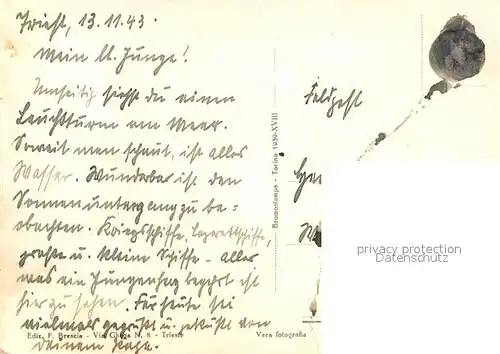 Triest, 13.11.43.
Mein lb. Junge!
Umseitig siehst du einen
Leuchtturm am Meer.
Soweit man schaut, ist alles
Wasser. Wunderbar ist den
Sonnenuntergang zu be=
obachten. Kriegsschiffe, Lazarettschiffe,
große u. kleine Schiffe - alles
was ein Jungenherz begehrt ist
hier zu sehen. Für heute sei
vielmals gegrüßt u. geküßt von
Deinem
Ediz. F. Brescia - Via Ghega N. 8 - Trieste
Vera fotografia
Bromostampa - Torino 1939-XVIII
Feldpost
privacy protection
Datenschutz